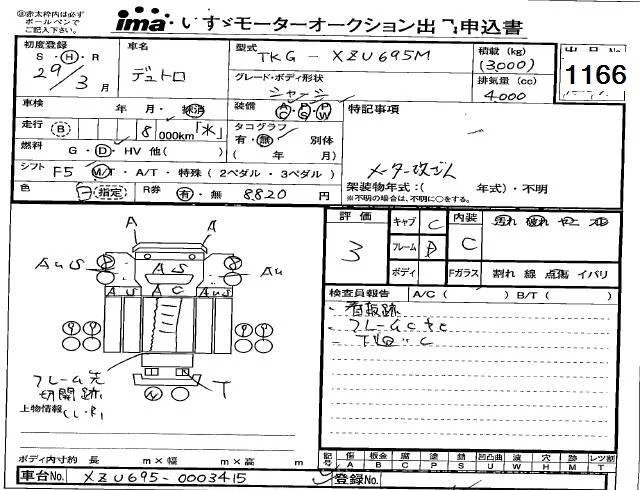 ※赤太枠内は必ず
ボールペンで
ご記入下さい。
ima いすゞモーターオークション出 申込書
初度登録
S・H・R
29/3 月
車名
デュトロ
型式
TKG - XZU695M
積載 (kg)
(3,000)
グレード・ボディ形状
シャーシ
排気量 (cc)
4,000
出品No.
1166
車検 年 月・抹消
装備 AC PS PW
特記事項
走行 (B) 8 000km「水」
タコグラフ
有・無 別体
( 年 月)
燃料 G・D・HV 他( )
シフト F5 M/T・A/T・特殊(2ペダル・3ペダル)
メーター改ざん
架装物年式:( 年式)・不明
※不明の場合は、不明に○をする。
色 白 (指定) R券 有・無 8,820 円
評価
3
キャブ C
フレーム D
ボディ
内装 C
汚れ 破れ
Fガラス 割れ 線 点傷 イバリ
検査員報告 A/C( ) B/T( )
・看板跡
・フレームC
・下回 〃 C
A A
AuS AS Au
AU AC AUS
フレーム先
切開跡
T
上物情報
ボディ内寸約 長 m×幅 m×高 m
記号 傷 板金 腐 塗 錆 凹凸曲 波 穴 跡 レツ割
A B C P S U W H M T
車台No. XZU695-0003415
登録No.